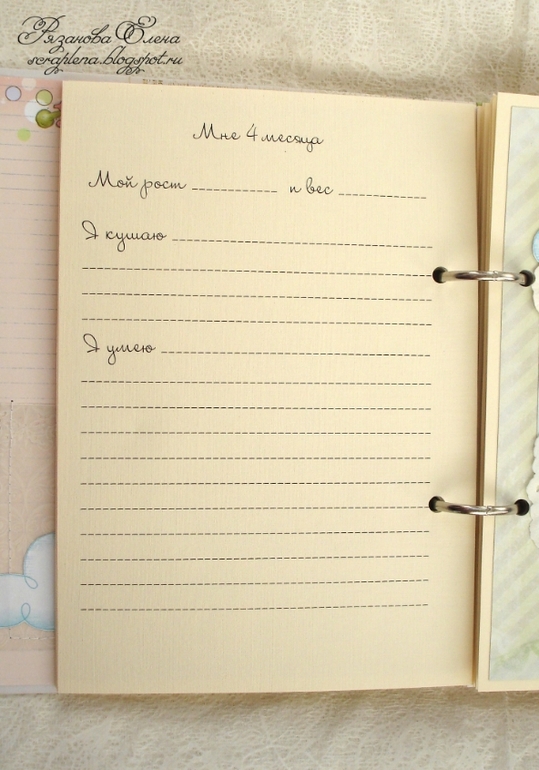 Рязанова Елена
scraplena.blogspot.ru
Мне 4 месяца
Мой рост __________ и вес __________
Я кушаю __________
Я умею __________